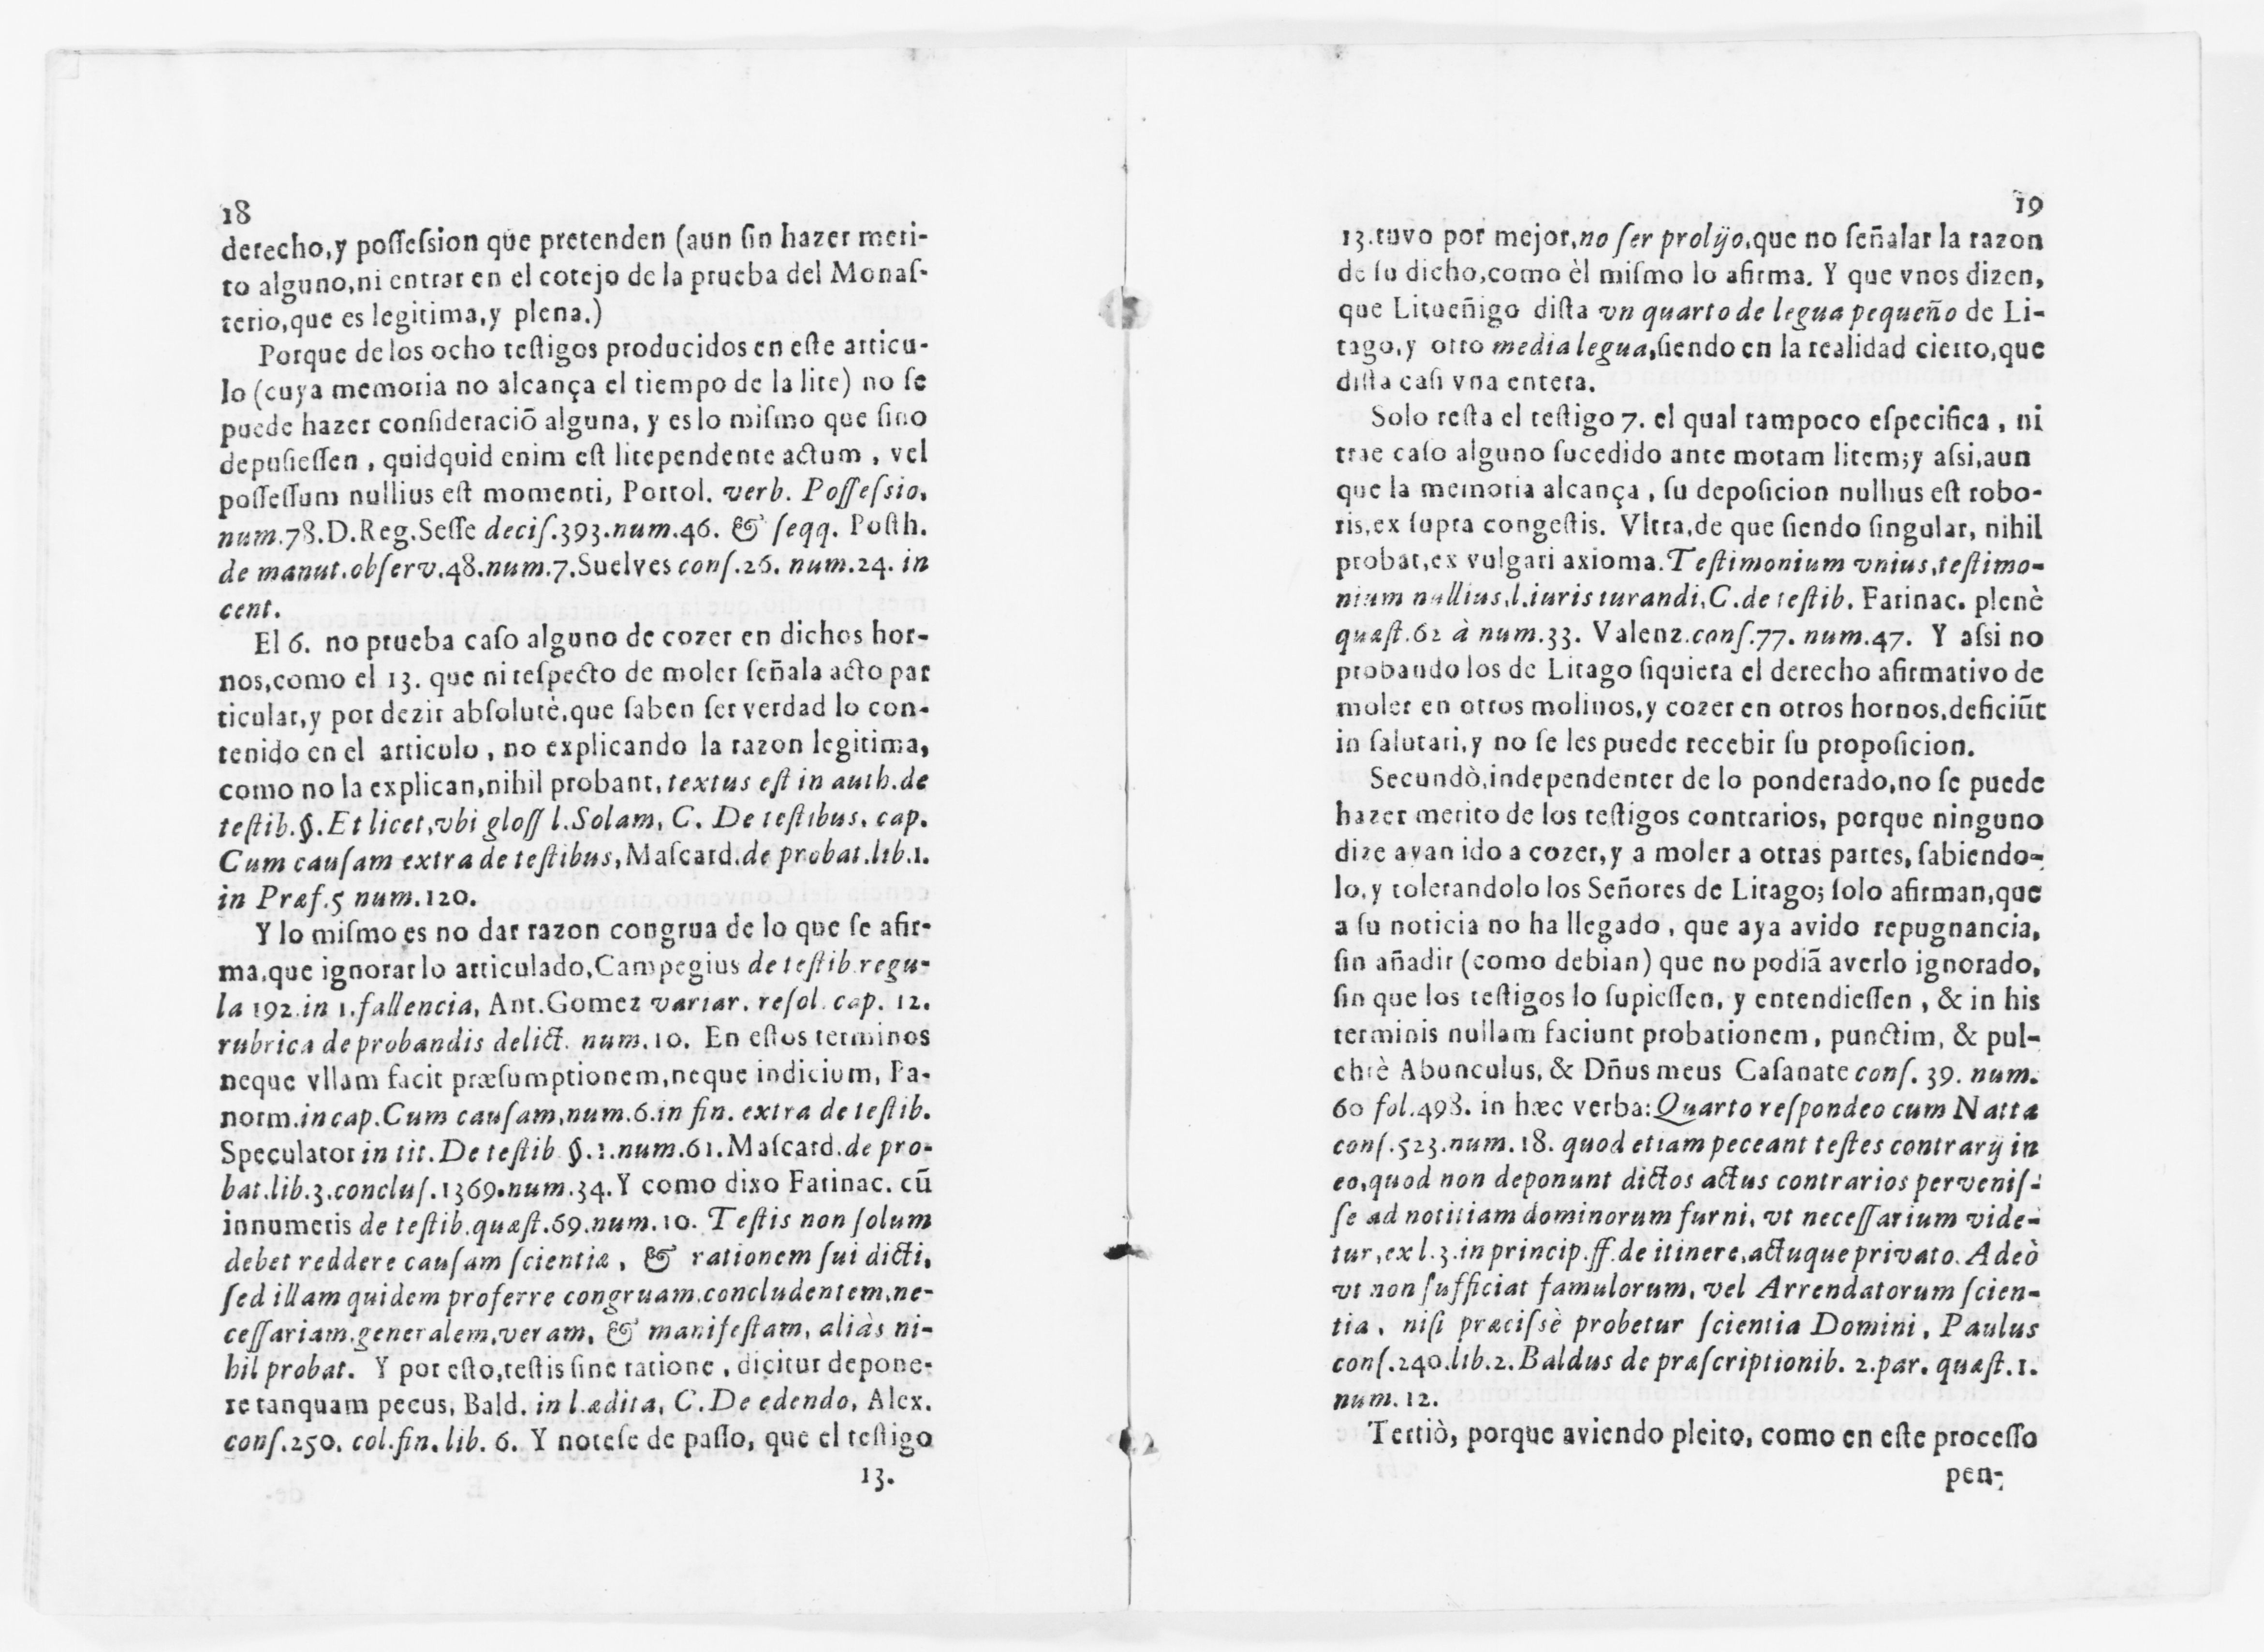 18
derecho,y poſſeſsion que pretenden (aun ſin hazer meri-
to alguno,ni entrar en el cotejo de la prueba del Monaſ-
terio,que es legitima,y plena.)
Porque de los ocho teſtigos producidos en eſte articu-
lo (cuya memoria no alcança el tiempo de la lite) no ſe
puede hazer conſideraciõ alguna, y es lo miſmo que ſino
depuſieſſen , quidquid enim eſt litependente actum , vel
poſſeſſum nullius eſt momenti, Portol. verb. Poſſeſsio,
num.78.D.Reg.Seſſe deciſ.393.num.46. & ſeqq. Poſth.
de manut.obſerv.48.num.7.Suelves conſ.26. num.24. in
cent.
El 6. no prueba caſo alguno de cozer en dichos hor-
nos,como el 13. que ni reſpecto de moler ſeñala acto par
ticular,y por dezir abſolutè,que ſaben ſer verdad lo con-
tenido en el articulo , no explicando la razon legitima,
como no la explican,nihil probant, textus eſt in auth.de
teſtib.§.Et licet,vbi gloſſ l.Solam, C. De teſtibus, cap.
Cum cauſam extra de teſtibus,Maſcard.de probat.lib.1.
in Præf.5 num.120.
Y lo miſmo es no dar razon congrua de lo que ſe afir-
ma,que ignorar lo articulado,Campegius de teſtib.regu-
la 192.in 1.fallencia, Ant.Gomez variar. reſol. cap. 12.
rubrica de probandis delict. num.10. En eſtos terminos
neque vllam facit præſumptionem,neque indicium, Pa-
norm.in cap.Cum cauſam,num.6.in fin. extra de teſtib.
Speculator in tit.De teſtib §.1.num.61.Maſcard.de pro-
bat.lib.3.concluſ.1369.num.34.Y como dixo Farinac. cũ
innumeris de teſtib.quæſt.69.num.10. Teſtis non ſolum
debet reddere cauſam ſcientiæ, & rationem ſui dicti,
ſed illam quidem proferre congruam,concludentem,ne-
ceſſariam,generalem,veram, & manifeſtam, aliàs ni-
hil probat. Y por eſto,teſtis ſine ratione , dicitur depone-
re tanquam pecus, Bald. in l.ædita, C.De edendo, Alex.
conſ.250. col.fin.lib. 6. Y noteſe de paſſo, que el teſtigo
13.
19
13.tuvo por mejor,no ſer prolijo,que no ſeñalar la razon
de ſu dicho,como èl miſmo lo afirma. Y que vnos dizen,
que Litueñigo diſta vn quarto de legua pequeño de Li-
tago,y otro media legua,ſiendo en la realidad cierto,que
diſta caſi vna entera.
Solo reſta el teſtigo 7. el qual tampoco eſpecifica , ni
trae caſo alguno ſucedido ante motam litem;y aſsi,aun
que la memoria alcança , ſu depoſicion nullius eſt robo-
ris,ex ſupra congeſtis. Vltra,de que ſiendo ſingular, nihil
probat,ex vulgari axioma.Teſtimonium vnius,teſtimo-
nium nullius,l.iuris iurandi,C.de teſtib. Farinac. plenè
quæſt.62 à num.33. Valenz.conſ.77. num.47. Y aſsi no
probando los de Litago ſiquiera el derecho afirmativo de
moler en otros molinos,y cozer en otros hornos,deficiũt
in ſalutari,y no ſe les puede recebir ſu propoſicion.
Secundò,independenter de lo ponderado,no ſe puede
hazer merito de los teſtigos contrarios, porque ninguno
dize ayan ido a cozer,y a moler a otras partes, ſabiendo-
lo,y tolerandolo los Señores de Litago; ſolo afirman,que
a ſu noticia no ha llegado , que aya avido repugnancia,
ſin añadir (como debian) que no podiã averlo ignorado,
ſin que los teſtigos lo ſupieſſen, y entendieſſen , & in his
terminis nullam faciunt probationem, punctim, & pul-
chrè Abunculus, & Dñus meus Caſanate conſ. 39. num.
60 fol.498. in hæc verba:Quarto reſpondeo cum Natta
conſ.523.num.18. quod etiam peceant teſtes contrarij in
eo,quod non deponunt dictos actus contrarios perveniſ-
ſe ad notitiam dominorum furni, vt neceſſarium vide-
tur,ex l.3.in princip.ff.de itinere,actuque privato.Adeò
vt non ſufficiat famulorum, vel Arrendatorum ſcien-
tia, niſi præciſsè probetur ſcientia Domini, Paulus
conſ.240.lib.2.Baldus de præſcriptionib. 2.par. quæſt.1.
num.12.
Tertiò, porque aviendo pleito, como en eſte proceſſo
pen-